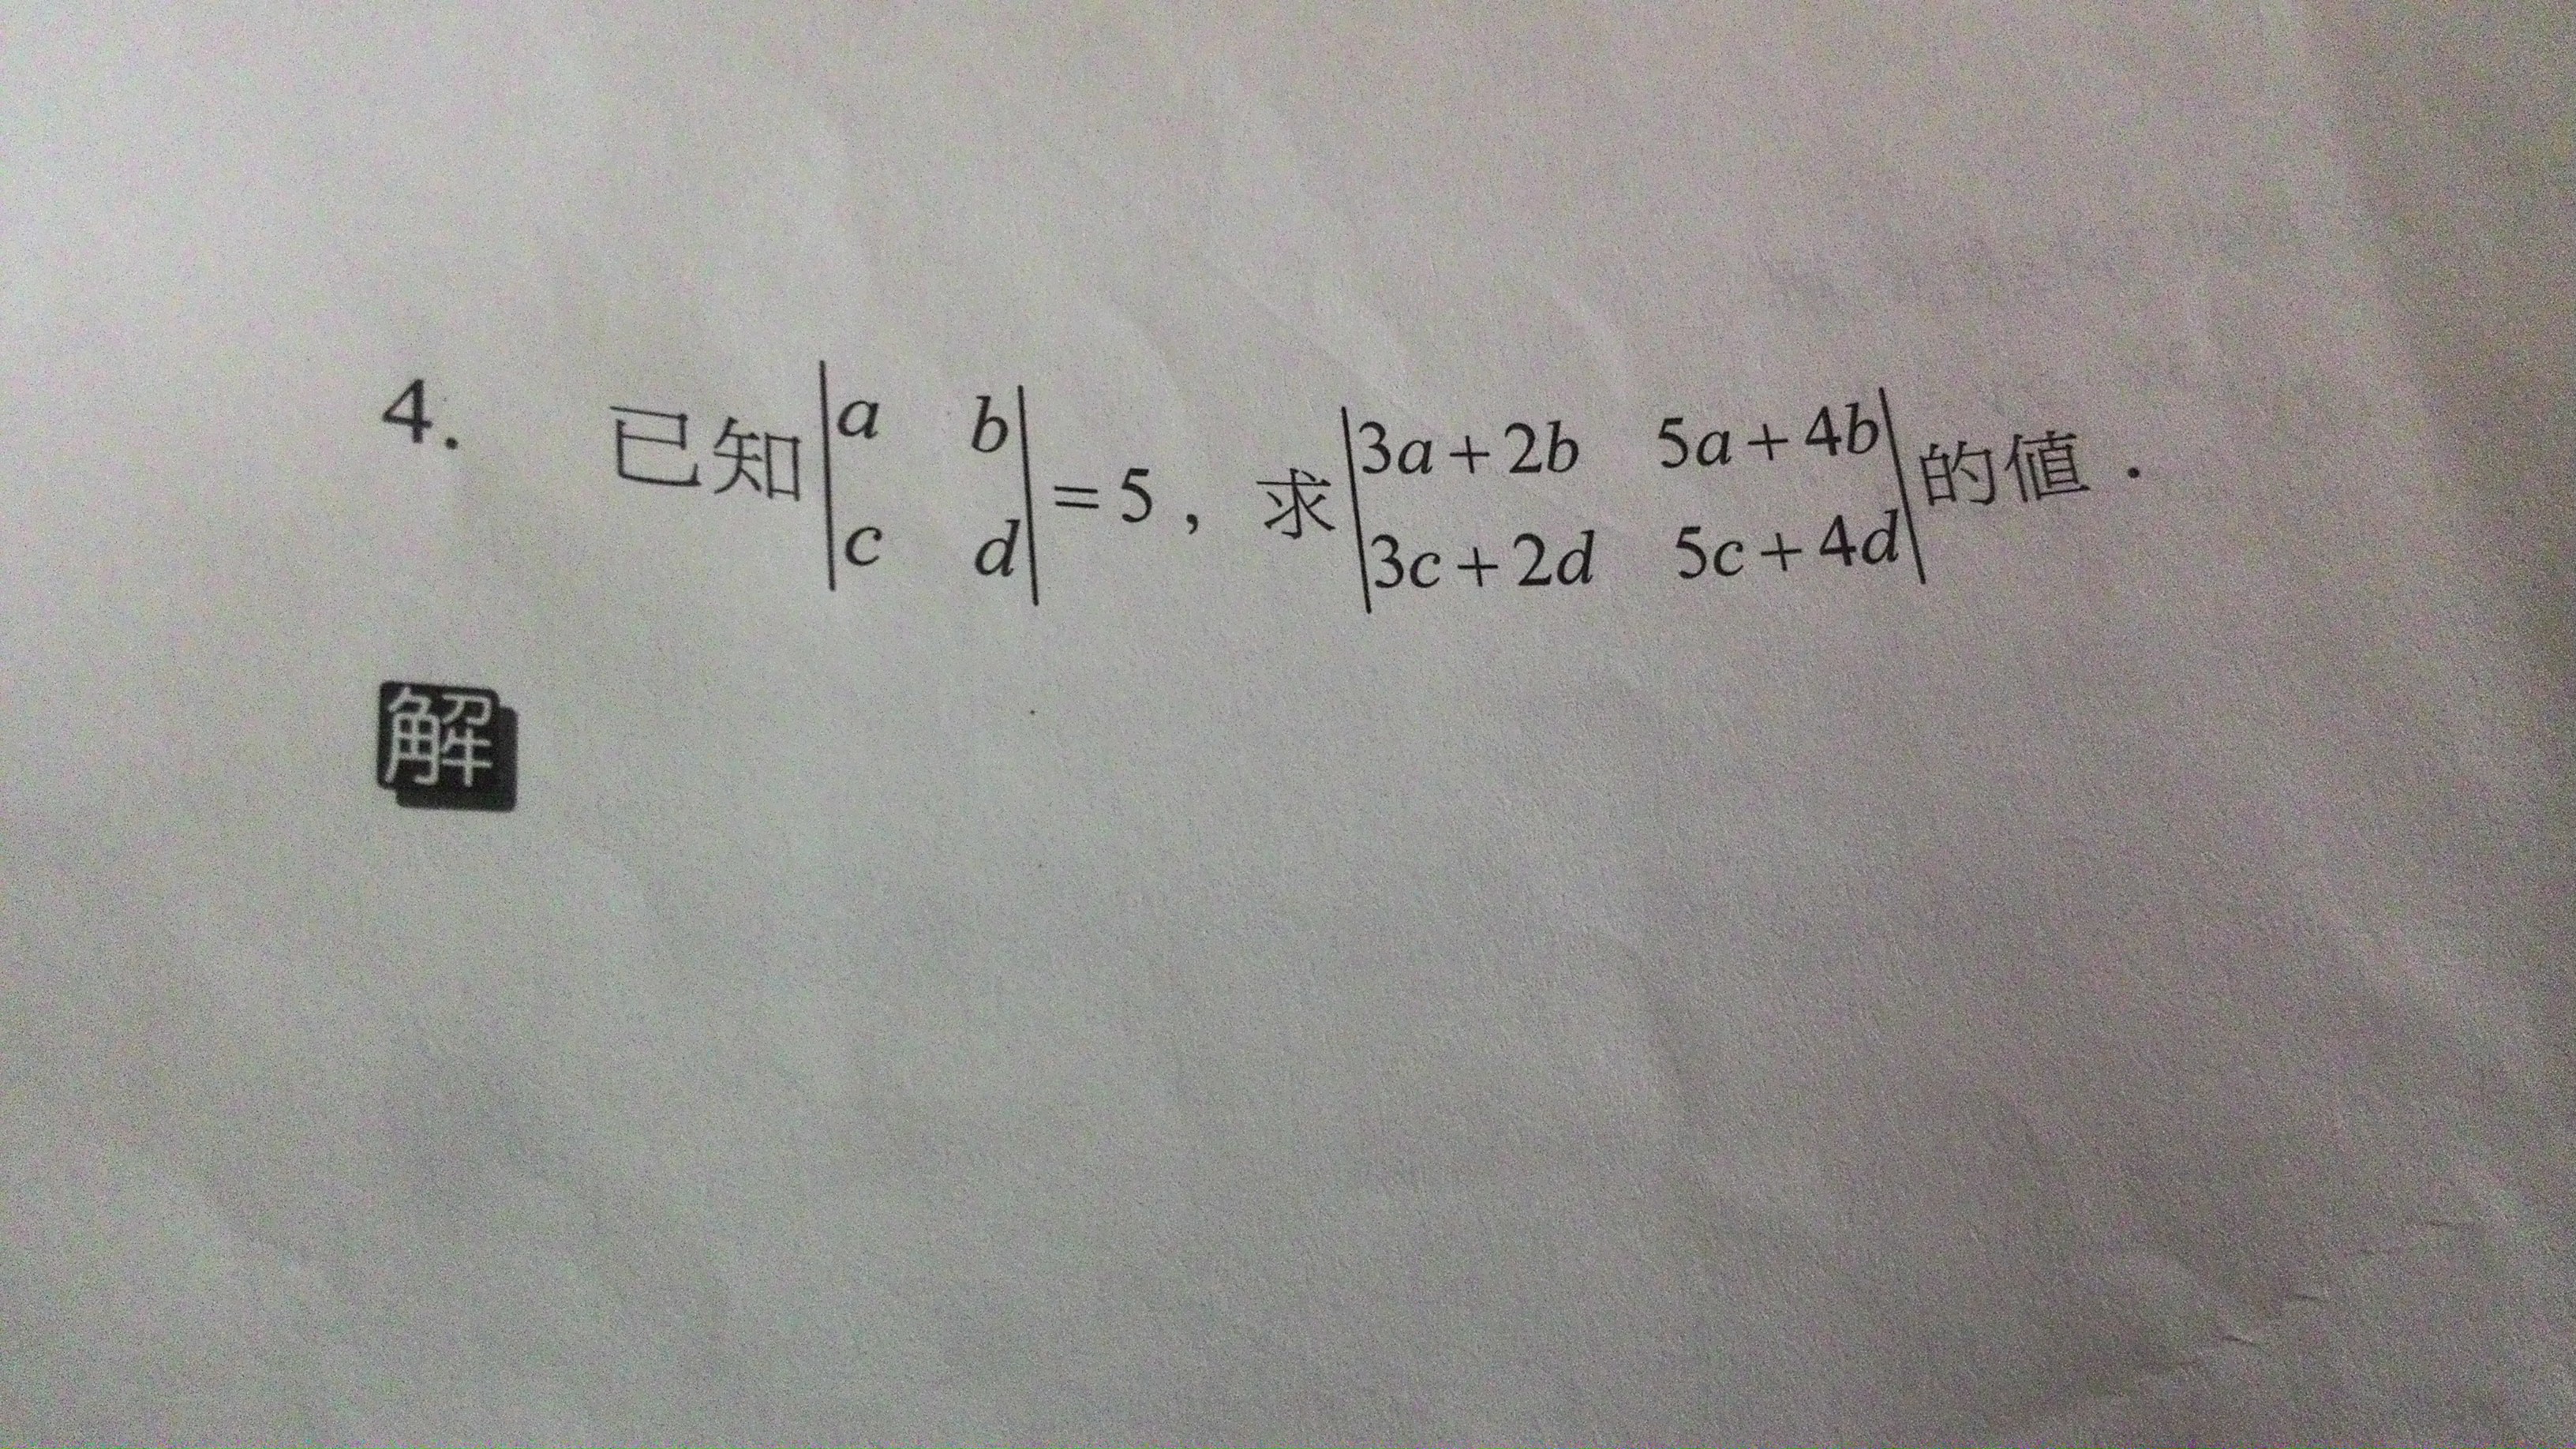 4. 已知|a b; c d|=5，求|3a+2b 5a+4b; 3c+2d 5c+4d|的值．
解